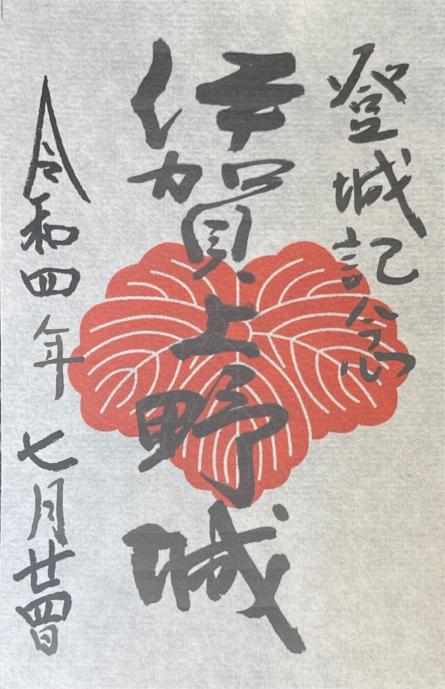 登城記念
伊賀上野城
令和四年七月廿四日